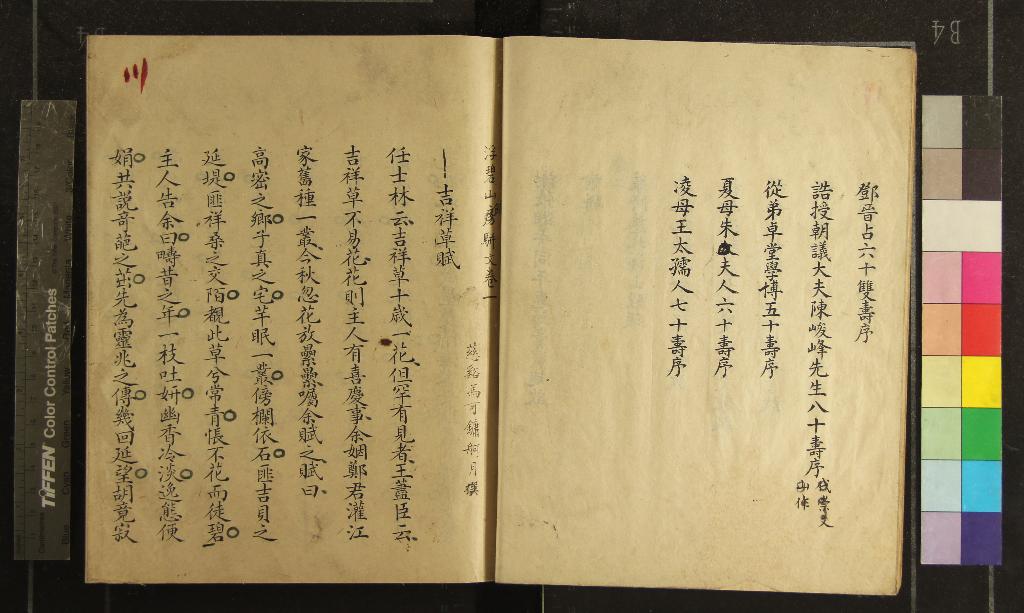 鄧晉占六十雙壽序
誥授朝議大夫陳峻峰先生八十壽序
從弟卓堂學博五十壽序
夏母朱太夫人六十壽序
凌母王太孺人七十壽序
浮碧山房駢文卷一
慈谿馮可鏞舸月撰
吉祥草賦
任士林云吉祥草十歲一花但罕有見者王藎臣云
吉祥草不易花花則主人有喜慶事余姻鄭君灌江
家舊種一叢今秋忽花放纍纍囑余賦之賦曰
高密之鄉子真之宅芊眠一叢傍欄依石匪吉貝之
延堤匪祥桑之交陌覩此草兮常青悵不花而徒碧
主人告余曰疇昔之年一枝吐妍幽香冷淡逸態便
娟共說奇葩之茁先為靈兆之傳幾回延望胡竟寂
TIFFEN Color Control Patches
B4
B4